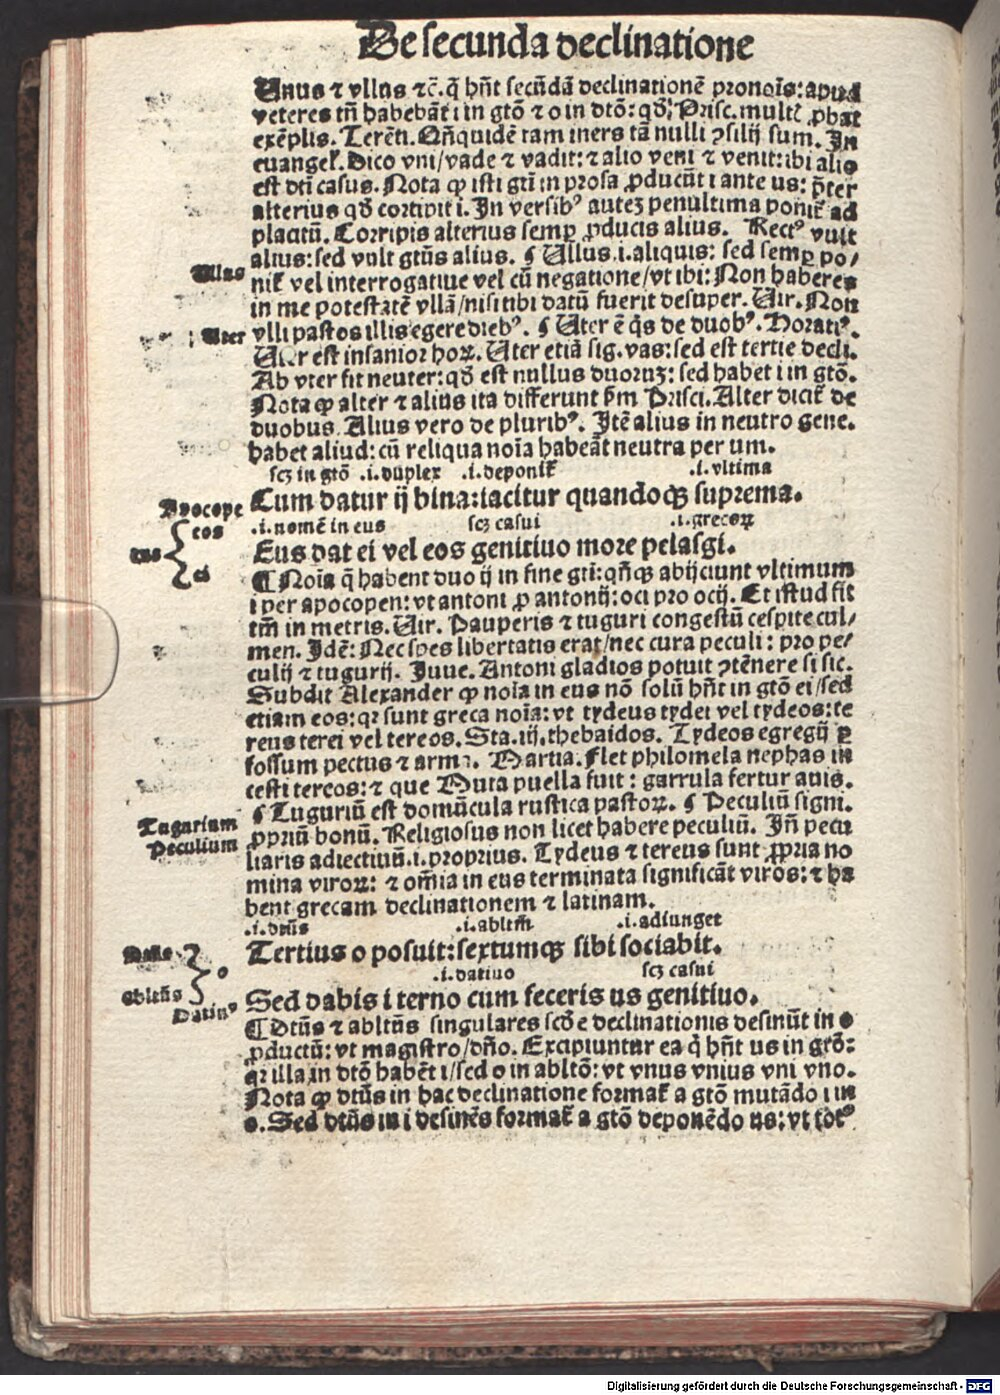 De secunda declinatione
Unus ⁊ vllus ⁊c̄. q̄ hn̄t secūdā declinationē pronoīs: apud
veteres tn̄ habebāt i in gtō ⁊ o in dtō: qđ Prisc. multꝭ ꝓbat
exēplis. Terēti. Qn̄quidē tam iners tā nulli ꝯsilij sum. In
euangel̕. Dico vni/vade ⁊ vadit: ⁊ alio veni ⁊ venit: ibi alio
est dti casus. Nota ꝙ isti gtī in prosa ꝓducūt i ante us: p̄ter
alterius qđ corripit i. In versibꝰ autez penultima ponit̕ ad
placitū. Corripis alterius semꝑ ꝓducis alius. Rectꝰ vult
alius: sed vult gtūs alius. ¶ Ullus .i. aliquis: sed semꝑ po/
Ullus
nit̕ vel interrogatiue vel cū negatione/vt ibi: Non haberes
in me potestatē vllā/nisi tibi datū fuerit desuper. Uir. Non
Uter
vlli pastos illis egere diebꝰ. ¶ Uter ē q̄s de duobꝰ. Horatiꝰ.
Uter est insanior hoꝝ. Uter etiā sig. vas: sed est tertie decli.
Ab vter fit neuter: qđ est nullus duoruz: sed habet i in gtō.
Nota ꝙ alter ⁊ alius ita differunt ẜm Prisci. Alter dicit̕ de
duobus. Alius vero de pluribꝰ. Itē alius in neutro gene.
habet aliud: cū reliqua noīa habeāt neutra per um.
scz in gtō .i. duplex .i. deponit̕ .i. vltima
Apocope
Cum datur ij bina: iacitur quandoqꝫ suprema.
.i. nomē in eus scz casui .i. grecoꝝ
eos
eus
ei
Eus dat ei vel eos genitiuo more pelasgi.
¶ Noīa q̄ habent duo ij in fine gti: qn̄qꝫ abijciunt vltimum
i per apocopen: vt antoni ꝓ antonij: oci pro ocij. Et istud fit
tm̄ in metris. Uir. Pauperis ⁊ tuguri congestū cespite cul/
men. Idē: Nec spes libertatis erat/nec cura peculi: pro pe/
culij ⁊ tugurij. Juue. Antoni gladios potuit ꝯtēnere si sic.
Subdit Alexander ꝙ noīa in eus nō solū hn̄t in gtō ei/sed
etiam eos: qꝛ sunt greca noīa: vt tydeus tydei vel tydeos: te
reus terei vel tereos. Sta. iij. thebaidos. Tydeos egregij ꝑ
fossum pectus ⁊ arma. Martia. Flet philomela nephas in
cesti tereos: ⁊ que Muta puella fuit: garrula fertur auis.
Tugurium
Peculium
¶ Tuguriū est domūcula rustica pastoꝝ. ¶ Peculiū signi.
ꝓpriū bonū. Religiosus non licet habere peculiū. Iñ pecu
liaris adiectiuū .i. proprius. Tydeus ⁊ tereus sunt ꝓpria no
mina viroꝝ: ⁊ om̄ia in eus terminata significāt viros: ⁊ ha
bent grecam declinationem ⁊ latinam.
.i. dtūs .i. abltm̄ .i. adiunget
Tertius o posuit: sextumqꝫ sibi sociabit.
.i. datiuo scz casui
o
abltūs
Datiuꝰ
Sed dabis i terno cum feceris us genitiuo.
¶ Dtūs ⁊ abltūs singulares scđe declinationis desinūt in o
ꝓductū: vt magistro/dn̄o. Excipiuntur ea q̄ hn̄t us in gtō:
qꝛ illa in dtō habēt i/sed o in abltō: vt vnus vnius vni vno.
Nota ꝙ dtūs in hac declinatione format̕ a gtō mutādo i in
o. Sed dtūs in i desinēs format̕ a gtō deponēdo us: vt totꝰ
Digitalisierung gefördert durch die Deutsche Forschungsgemeinschaft - DFG